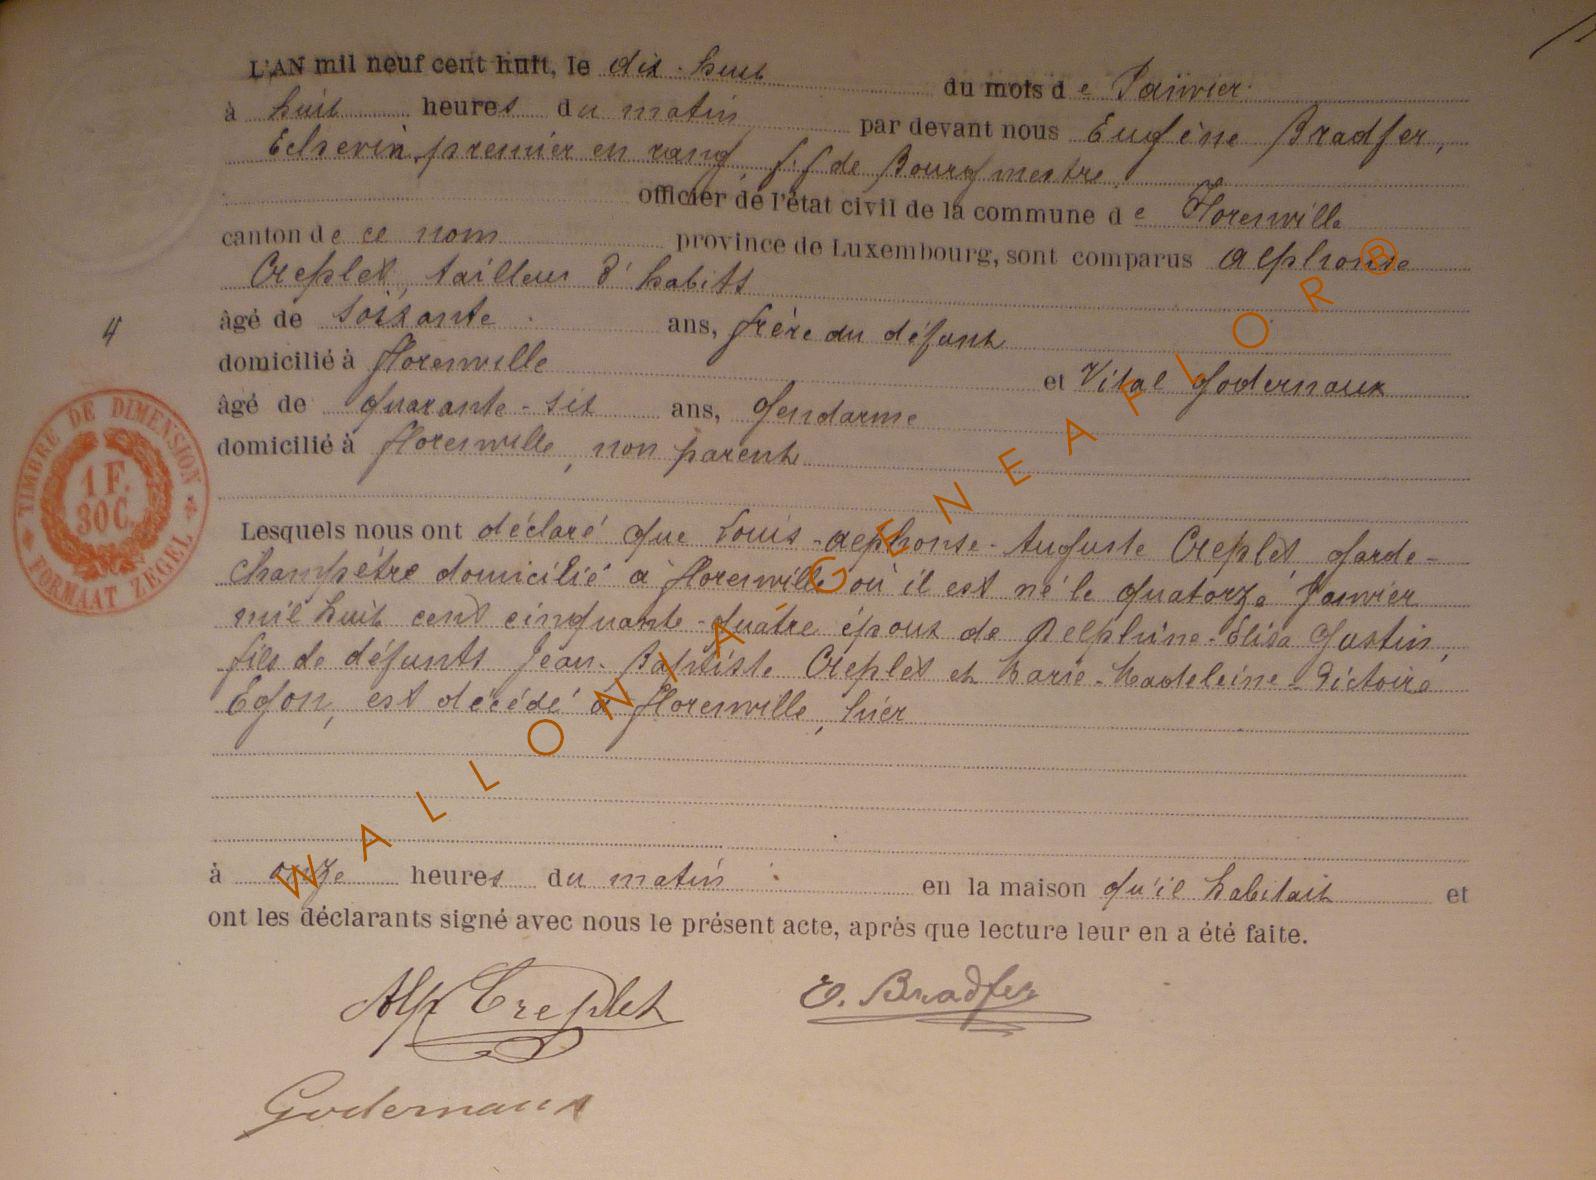 L'AN mil neuf cent huit, le dix-huit du mois de Janvier
à huit heures du matin par devant nous Eugène Bradfer,
Echevin, premier en rang, f.f de Bourgmestre
officier de l'état civil de la commune de Florenville
canton de ce nom province de Luxembourg, sont comparus Alphonse
Creplet, tailleur d'habits
âgé de soixante ans, frère du défunt
domicilié à Florenville et Vital Godernaux
âgé de quarante-six ans, gendarme
domicilié à Florenville, non parent
4
TIMBRE DE DIMENSION
1 F.
30 C.
FORMAAT ZEGEL
Lesquels nous ont déclaré que Louis-Alphonse-Auguste Creplet garde-
champêtre domicilié à Florenville où il est né le quatorze Janvier
mil huit cent cinquante-quatre époux de Delphine-Elisa Gustin,
fils de défunts Jean-Baptiste Creplet et Marie-Madeleine-Victoire
Egon, est décédé à Florenville, hier
à onze heures du matin en la maison qu'il habitait et
ont les déclarants signé avec nous le présent acte, après que lecture leur en a été faite.
Alp Creplet E. Bradfer
Godernaux
WALLONIA GENEAFLOR ®